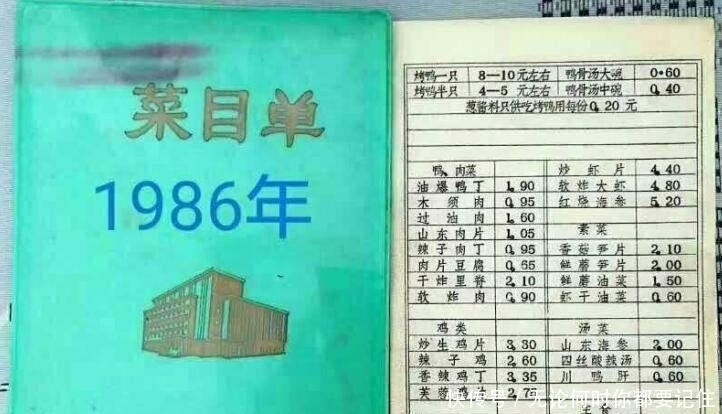 菜目单
1986年
烤鸭一只 8—10元左右 鸭骨汤大碗 0.60
烤鸭半只 4—5元左右 鸭骨汤中碗 0.40
葱酱料只供吃烤鸭用每份0.20元
鸭、肉菜
油爆鸭丁 1.90
木须肉 0.95
过油肉 1.60
山东肉片 1.05
辣子肉丁 0.95
肉片豆腐 0.65
干炸里脊 2.10
软炸肉 0.90
鸡类
炒生鸡片 3.30
辣子鸡 2.60
香辣鸡丁 3.35
芙蓉鸡片 2.7
炒虾片 4.40
软炸大虾 4.80
红烧海参 5.20
素菜
香菇笋片 2.10
鲜蘑笋片 2.00
鲜蘑油菜 1.50
虾干油菜 0.60
汤菜
山东海参 2.00
四丝酸辣汤 0.60
川鸭肝 0.60
快传号／无论何时你都要记住